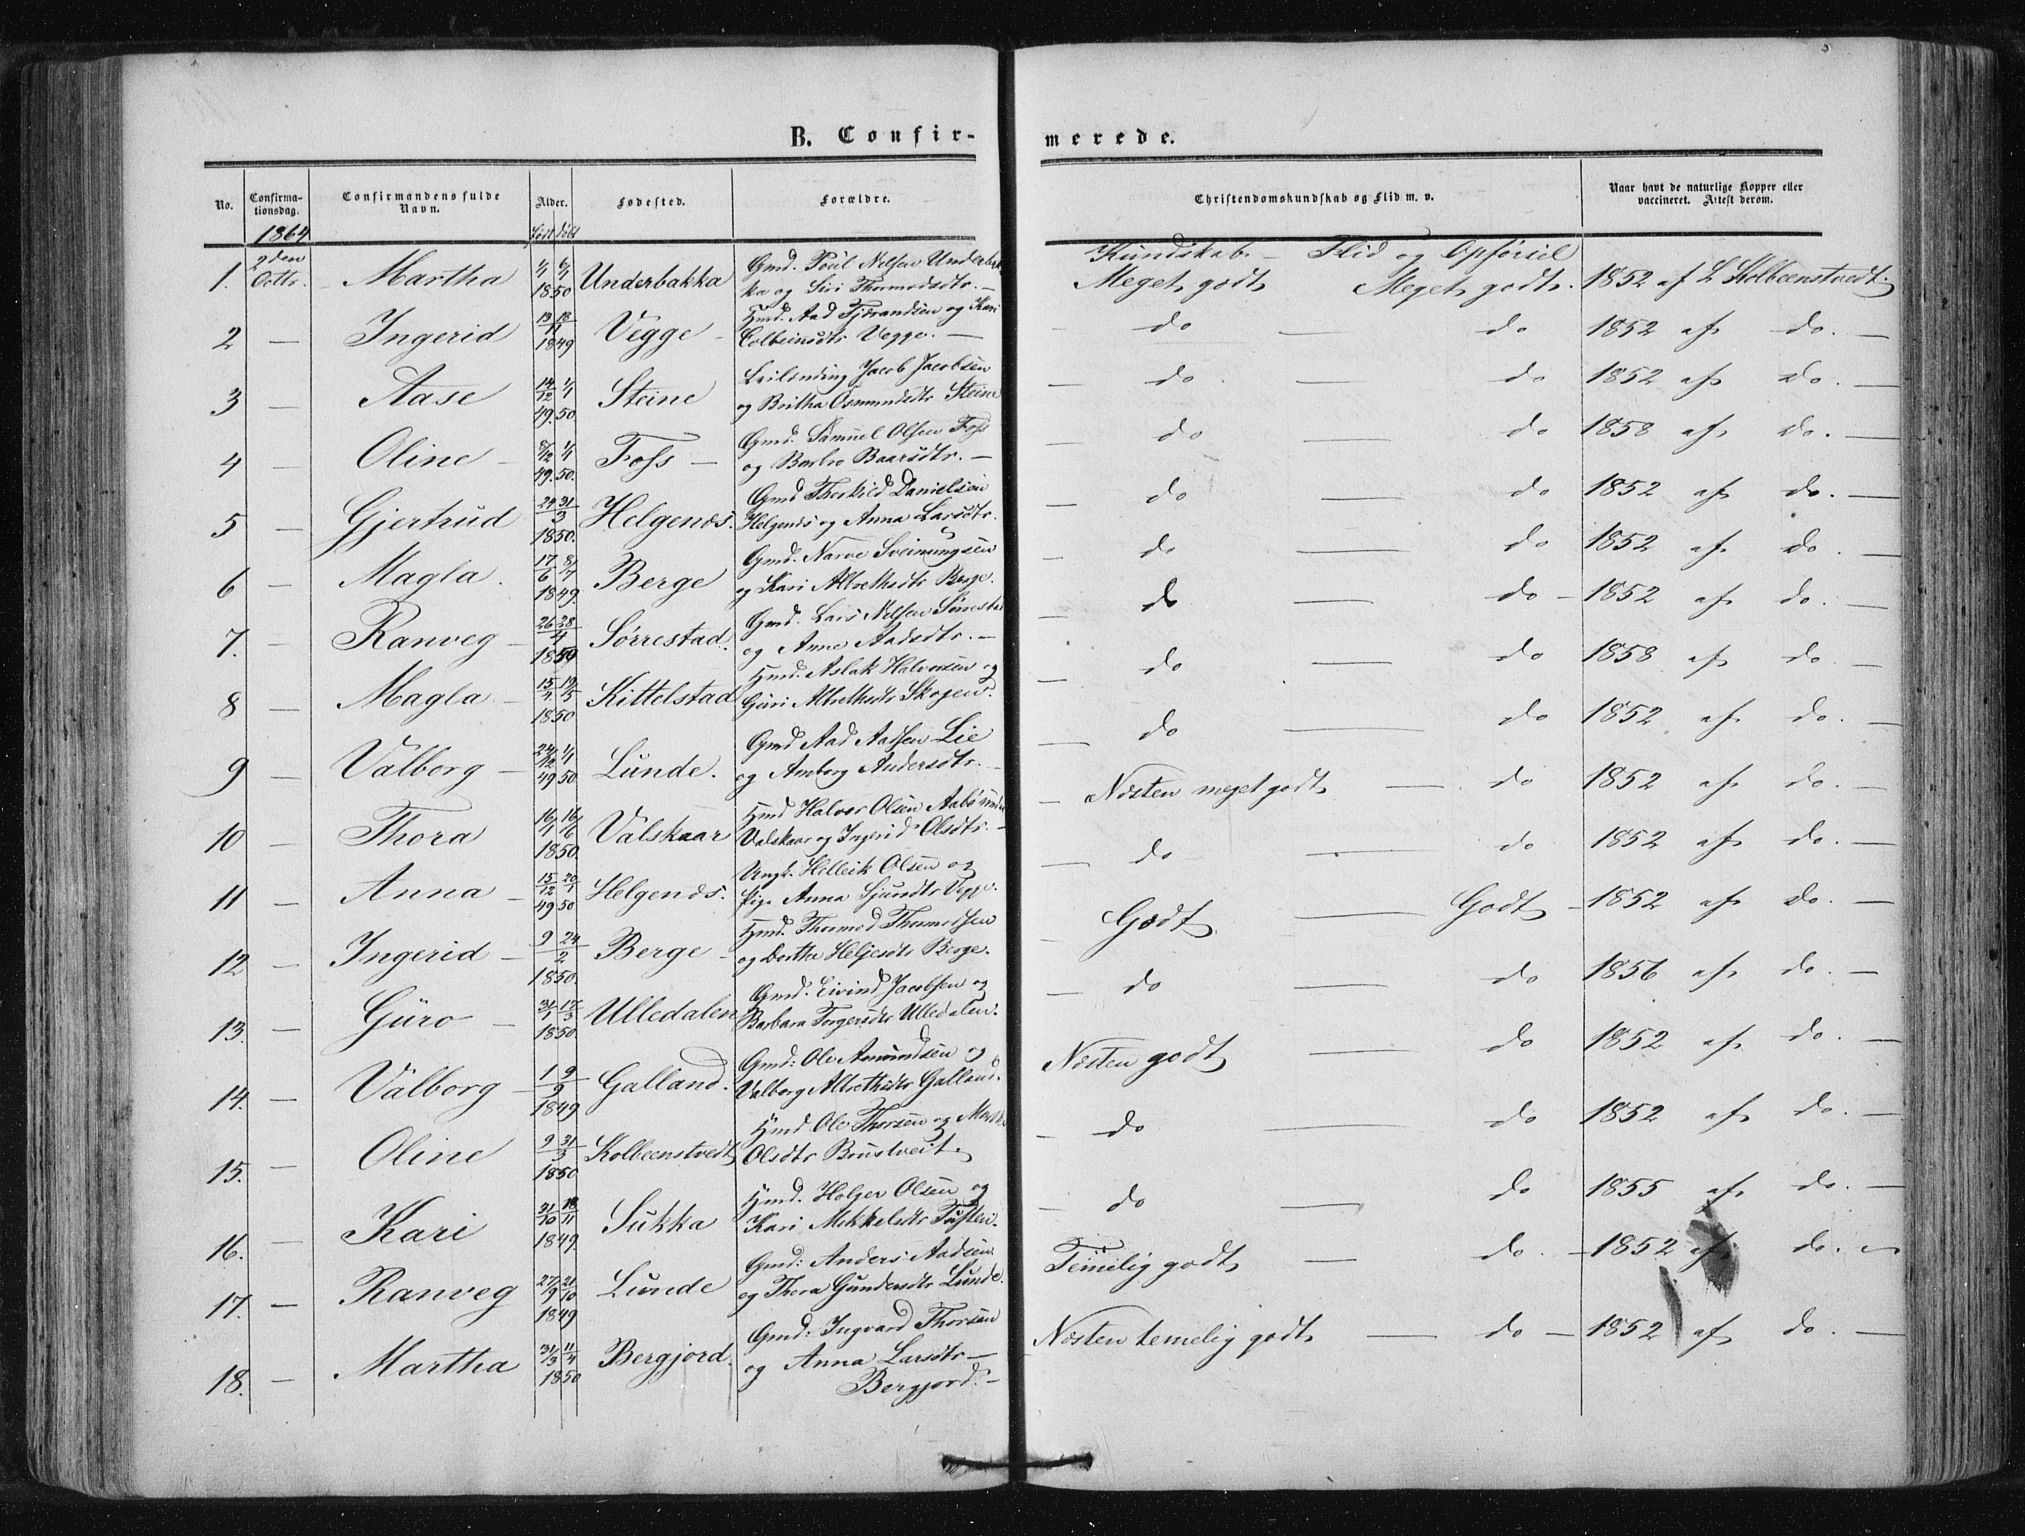 B. Confir-
merede.
No.
Confirma-
tionsdag.
Confirmandens fulde
Navn.
Alder.
Fødested.
Forældre.
Christendomskundskab og Flid m. v.
Naar havt de naturlige Kopper eller
vaccineret. Attest derom.
1864
født døbt
Kundskab. — Flid og Opførsel
1. 2den Octbr. Martha 1/1 6/1 1850 Underbakka Gmd. Poül Nelsen Underbak
ka og Siri Thormodsdtr. —
Meget godt Meget godt. 1852 af L Kolbeenstvedt.
2 — Ingerid 13 18/11 1849 Vegge — Hmd. Aad Tjørandsen og Kari
Colbeinsdtr Vegge. —
do — do 1852 af do. —
3 — Aase 14/12 1/1 49. 50. Steine Leilending Jacob Jacobsen
og Britha Osmundsdtr Steine
— do — do 1852 af do. —
4 — Oline — 8/12 1/1 49. 50. Foss — Gmd. Samuel Olsen Foss
og Barbro Baarsdtr. —
— do do 1858 af do. —
5 — Gjertrud 24 31/3 1850. Helgenes. Gmd Thorkild Danielsen
Helgenes og Anna Larsdtr.
— do — do 1852 af do. —
6 — Magla. 17/6 8/7 1849. Berge Gmd. Narve Sveinungsen
og Kari Albrethsdtr Berge.
— do — do 1852 af do. —
7. — Ranveg — 26 28/4 1850 Sørrestad. Gmd. Lars Nelsen Sørrestad
og Anne Aadsdtr. —
— do — do — 1852 af do. —
8 — Magla — 15/4 19/5 1850 Kittelstad Hmd. Aslak Halvorsen og
Guri Albrethsdtr Skogen.
— do — do 1858 af do. —
9 — Valborg — 24/12 1/1 49 50 Lunde. Gmd Aad Aadsen Lie
og Amborg Andersdtr. —
— do — do 1852 af do. —
10 — Thora 16/1 16/6 1850. Valskaar Hmd Halvor Olsen
Valskaar og Ingerid Olsdtr. —
— Næsten meget godt — do 1852 af do. —
11 — Anna — 15/12 20/1 49 50 Helgenes. Ungk. Helleik Olsen og
Pige Anna Sjursdtr Vegge.
— do — do 1852 af do. —
12 — Ingerid — 9 24/2 1850. Berge — Hmd. Thormod Thormodsen
og Dorthe Heljesdtr Berge.
— Godt — Godt — 1852 af do. —
13. — Guro — 31/1 17/3 1850. Ulledalen Gmd. Eivind Jacobsen og
Barbara Torgersdtr Ulledalen.
— do — do 1856 af do. —
14. — Valborg — 1 9/9 1849 Galland. Gmd: Ole Amundsen og
Valborg Albrethsdtr Galland.
Næsten godt — do 1852 af do. —
15. — Oline 9 31/3 1850 Kolbeenstvedt Hmd Ole Thorsen og
Olsdtr Brustveit.
— do — do 1852 af do. —
16. — Kari 21/10 18/11 1849. Sukka Hmd. Holger Olsen og
Kari Mikkelsdtr Tuften.
— do — do 1855 af do. —
17. — Ranveg 27/9 21/10 1849 Lunde Gmd: Anders Aadsen
og Thora Gundersdtr Lunde.
Temelig godt — do. — 1852 af do. —
18. — Martha 31/3 11/4 1850 Bergjord. Gmd: Ingvard Thorsen
og Anna Larsdtr —
Bergjord. —
Næsten temelig godt — do — 1852 af do. —